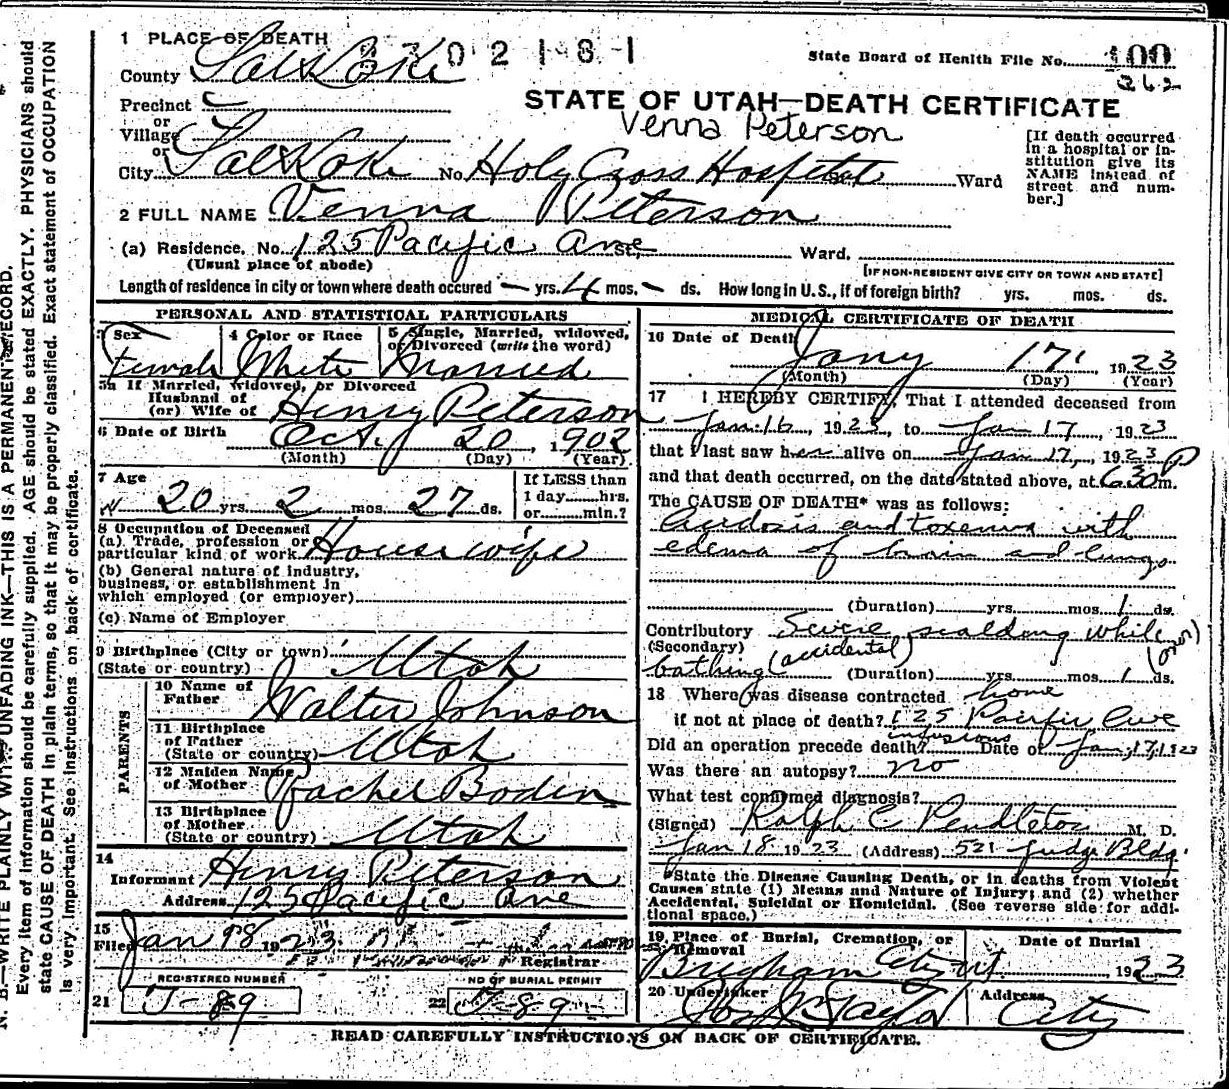 1 PLACE OF DEATH
8302181
State Board of Health File No. 100
262
County Salt Lake
STATE OF UTAH—DEATH CERTIFICATE
Precinct
or
Village
Venna Peterson
or
City Salt Lake No. Holy Cross Hospital St. Ward
[If death occurred
in a hospital or in-
stitution give its
NAME instead of
street and num-
ber.]
2 FULL NAME Venna Peterson
(a) Residence, No. 125 Pacific Ave St. Ward.
(Usual place of abode)
[IF NON-RESIDENT GIVE CITY OR TOWN AND STATE]
Length of residence in city or town where death occured — yrs. 4 mos. — ds. How long in U. S., if of foreign birth? yrs. mos. ds.
PERSONAL AND STATISTICAL PARTICULARS
3 Sex
Female
4 Color or Race
White
5 Single, Married, widowed,
or Divorced (write the word)
Married
5a If Married, widowed, or Divorced
Husband of
(or) Wife of Henry Peterson
6 Date of Birth Oct. 20, 1902
(Month) (Day) (Year)
7 Age
20 yrs. 2 mos. 27 ds.
If LESS than
1 day hrs.
or min.?
8 Occupation of Deceased
(a) Trade, profession or
particular kind of work Housewife
(b) General nature of industry,
business, or establishment in
which employed (or employer)
(c) Name of Employer
9 Birthplace (City or town)
(State or country) Utah
PARENTS
10 Name of
Father Walter Johnson
11 Birthplace
of Father
(State or country) Utah
12 Maiden Name
of Mother Rachel Boden
13 Birthplace
of Mother
(State or country) Utah
14
Informant Henry Peterson
Address 125 Pacific Ave
15
Filed Jan 18 1923
Registrar
REGISTERED NUMBER
21 J-89
NO OF BURIAL PERMIT
22 J-89
MEDICAL CERTIFICATE OF DEATH
16 Date of Death Jany 17, 1923
(Month) (Day) (Year)
17 I HEREBY CERTIFY, That I attended deceased from
Jan. 16, 1923, to Jan 17, 1923
that I last saw her alive on Jan 17, 1923
and that death occurred, on the date stated above, at 6 30 P m.
The CAUSE OF DEATH* was as follows:
Acidosis and toxemia with
edema of brain and lungs
(Duration) yrs. mos. 1 ds.
Contributory Severe scalding while
(Secondary)
bathing (accidental) (Duration) yrs. mos. 1 ds.
18 Where was disease contracted home
if not at place of death? 125 Pacific Ave
Did an operation precede death? infusions Date of Jan, 17, 1923
Was there an autopsy? no
What test confirmed diagnosis?
(Signed) Ralph C Pendleton M. D.
Jan 18 1923 (Address) 521 Judge Bldg.
*State the Disease Causing Death, or in deaths from Violent
Causes state (1) Means and Nature of Injury; and (2) whether
Accidental, Suicidal or Homicidal. (See reverse side for addi-
tional space.)
19 Place of Burial, Cremation, or
Removal
Brigham City Ut.
Date of Burial
1923
20 Undertaker
Address
City
READ CAREFULLY INSTRUCTIONS ON BACK OF CERTIFICATE.
N. B.—WRITE PLAINLY WITH UNFADING INK—THIS IS A PERMANENT RECORD.
Every item of information should be carefully supplied. AGE should be stated EXACTLY. PHYSICIANS should
state CAUSE OF DEATH in plain terms, so that it may be properly classified. Exact statement of OCCUPATION
is very important. See instructions on back of certificate.